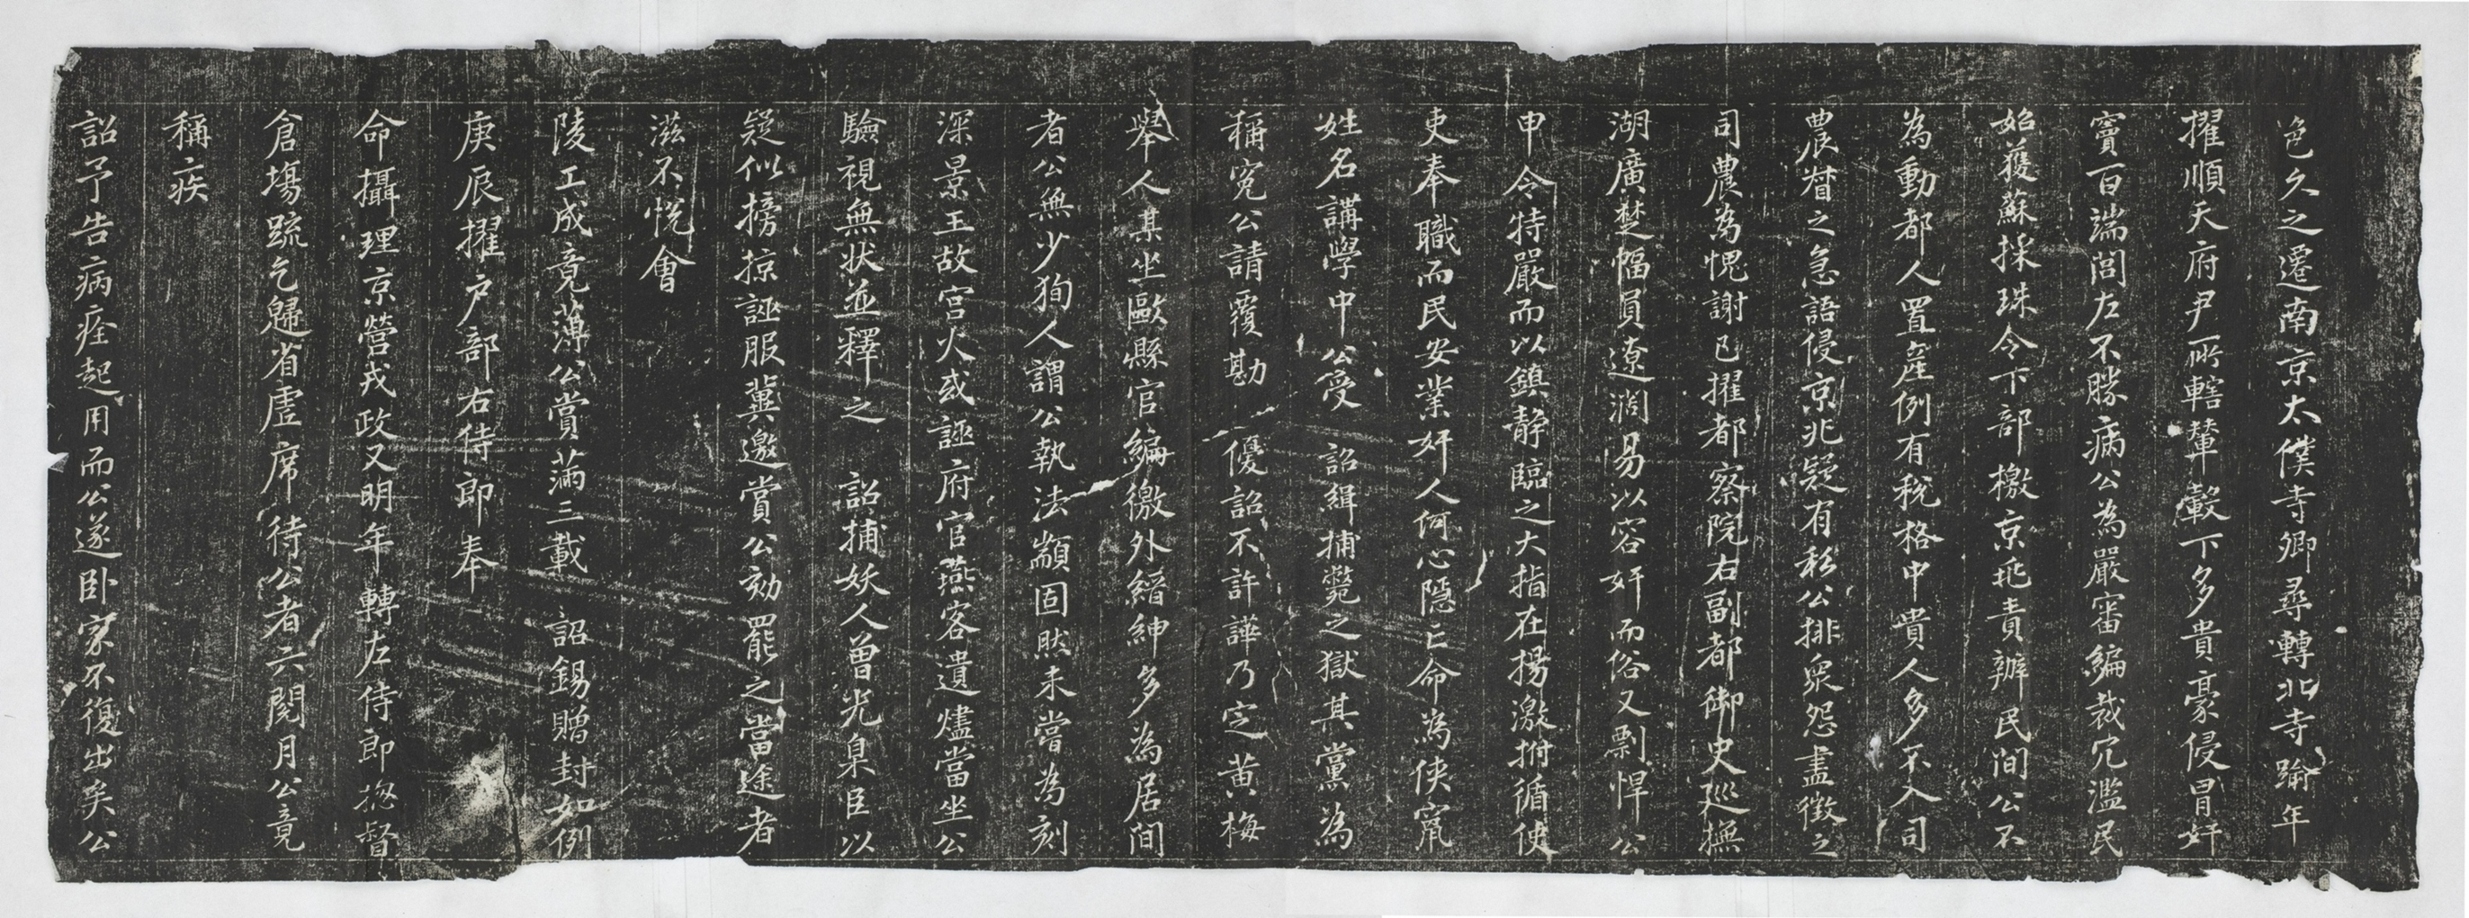 邑久之遷南京太僕寺卿尋轉北寺踰年
擢順天府尹所轄輦轂下多貴豪侵冒奸
竇百端閭左不勝病公為嚴審編裁冗濫民
始獲蘇採珠令下部檄京兆責辦民間公不
為動都人置產例有稅格中貴人多不入司
農督之急語侵京兆疑有私公排衆怨盡徵之
司農為愧謝已擢都察院右副都御史廵撫
湖廣楚幅員遼濶易以容奸而俗又剽悍公
申令特嚴而以鎮静臨之大指在揚激拊循使
吏奉職而民安業奸人何心隱亡命為俠竄
姓名講學中公受 詔緝捕斃之獄其黨為
稱寃公請覆勘 優詔不許譁乃定黄梅
舉人某坐毆縣官編徼外縉紳多為居間
者公無少狥人謂公執法顓固然未嘗為刻
深景王故宫火或誣府官燕客遺燼當坐公
驗視無狀並釋之 詔捕妖人曾光臬臣以
疑似搒掠誣服冀邀賞公劾罷之當途者
滋不悅會
陵工成竟薄公賞滿三載 詔錫贈封如例
庚辰擢户部右侍郎奉
命攝理京營戎政又明年轉左侍郎揔督
倉塲疏乞歸省虛席待公者六閱月公竟
稱疾
詔予告病痊起用而公遂卧家不復出矣公